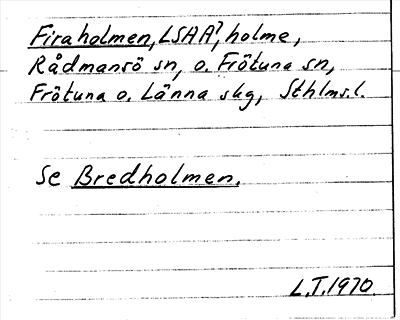 Firaholmen, LSHA?, holme,
Rådmansö sn, o. Frötuna sn,
Frötuna o. Länna skg, Sthlms.l.
Se Bredholmen.
L.T.1970.